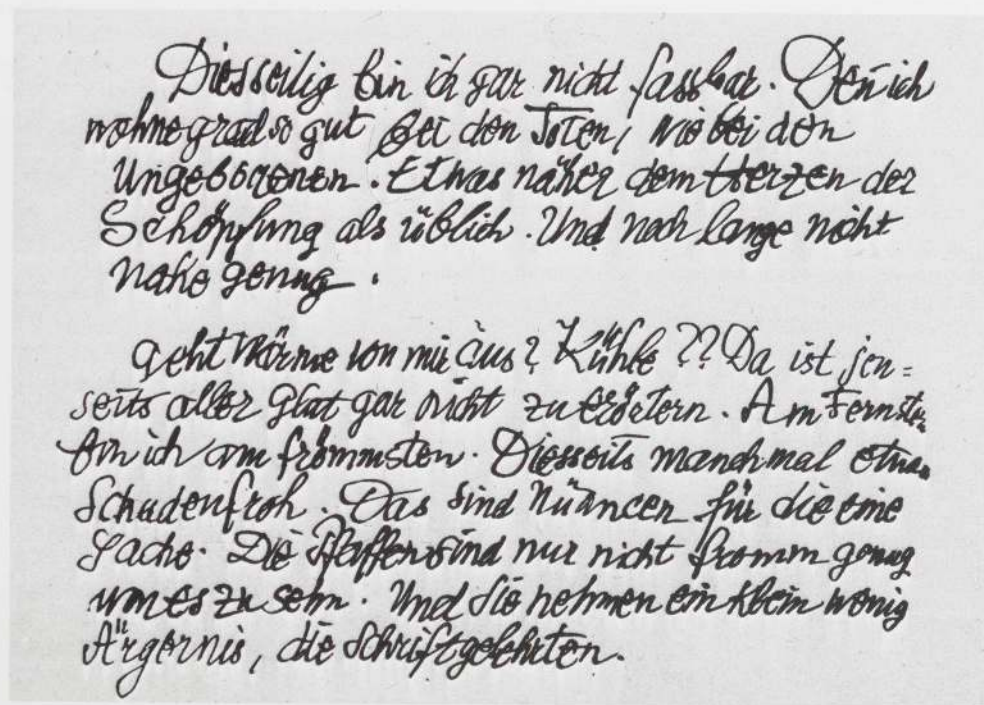 Diesseitig bin ich gar nicht fassbar. Den̄ ich
wohne grad so gut bei den Toten, wie bei den
Ungeborenen. Etwas näher dem Herzen der
Schöpfung als üblich. Und noch lange nicht
nahe genug.
Geht Wärme von mir aus? Kühle?? Da ist jen=
seits aller Glut gar nicht zu erörtern. Am Fernsten
bin ich am frömmsten. Diesseits manchmal etwas
Schadenfroh. Das sind Nüancen für die eine
Sache. Die Pfaffen sind nur nicht fromm genug
um es zu sehn. Und sie nehmen ein klein wenig
Ärgernis, die Schriftgelehrten.